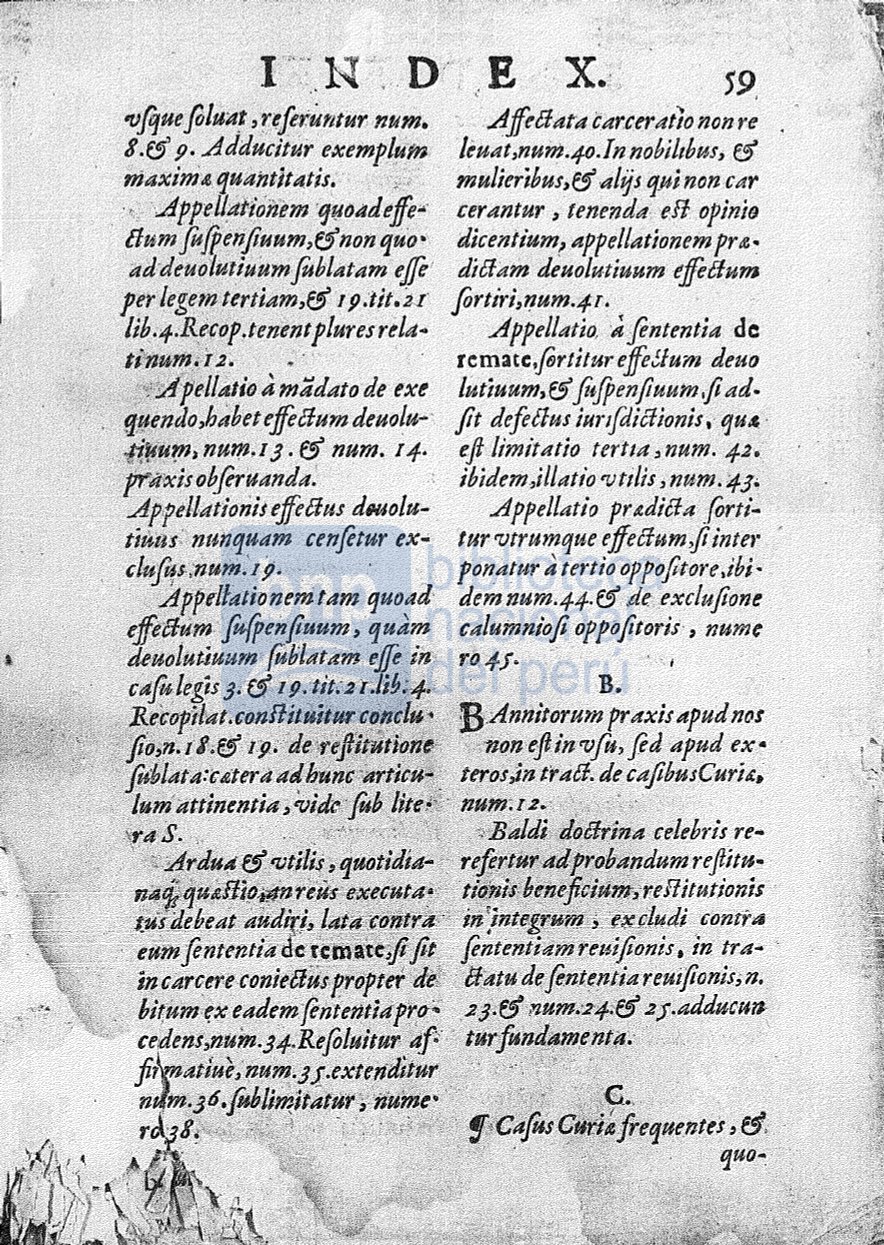 INDEX. 59
vſque ſoluat, reſeruntur num.
8. & 9. Adducitur exemplum
maximæ quantitatis.
Appellationem quoad effe-
ctum ſuſpenſiuum, & non quo-
ad deuolutiuum ſublatam eſſe
per legem tertiam, & 19. tit. 21
lib. 4. Recop. tenent plures rela-
ti num. 12.
Apellatio à mãdato de exe
quendo, habet effectum deuolu-
tiuum, num. 13. & num. 14.
praxis obſeruanda.
Appellationis effectus deuolu-
tiuus nunquam cenſetur ex-
cluſus, num. 19.
Appellationem tam quoad
effectum ſuſpenſiuum, quàm
deuolutiuum ſublatam eſſe in
caſu legis 3. & 19. tit. 21. lib. 4.
Recopilat. conſtituitur conclu-
ſio, n. 18. & 19. de reſtitutione
ſublata: cætera ad hunc articu-
lum attinentia, vide ſub lite-
ra S.
Ardua & vtilis, quotidia-
naq; quæſtio, an reus executa-
tus debeat audiri, lata contra
eum ſententia de remate, ſi ſit
in carcere coniectus propter de
bitum ex eadem ſententia pro-
cedens, num. 34. Reſoluitur af-
firmatiuè, num. 35. extenditur
num. 36. ſublimitatur, nume-
ro 38.
Affectata carceratio non re
leuat, num. 40. In nobilibus, &
mulieribus, & alijs qui non car
cerantur, tenenda eſt opinio
dicentium, appellationem præ-
dictam deuolutiuum effectum
ſortiri, num. 41.
Appellatio à ſententia de
remate, ſortitur effectum deuo
lutiuum, & ſuſpenſiuum, ſi ad-
ſit defectus iuriſdictionis, quæ
eſt limitatio tertia, num. 42.
ibidem, illatio vtilis, num. 43.
Appellatio prædicta ſorti-
tur vtrumque effectum, ſi inter
ponatur à tertio oppoſitore, ibi-
dem num. 44. & de excluſione
calumnioſi oppoſitoris, nume
ro 45.
B.
BAnnitorum praxis apud nos
non eſt in vſu, ſed apud ex-
teros, in tract. de caſibus Curiæ,
num. 12.
Baldi doctrina celebris re-
refertur ad probandum reſtitu-
tionis beneficium, reſtitutionis
in integrum, excludi contra
ſententiam reuiſionis, in tra-
ctatu de ſententia reuiſionis, n.
23. & num. 24. & 25. adducun
tur fundamenta.
C.
¶ Caſus Curiæ frequentes, &
quo-
bnp biblioteca
nacional
del perú